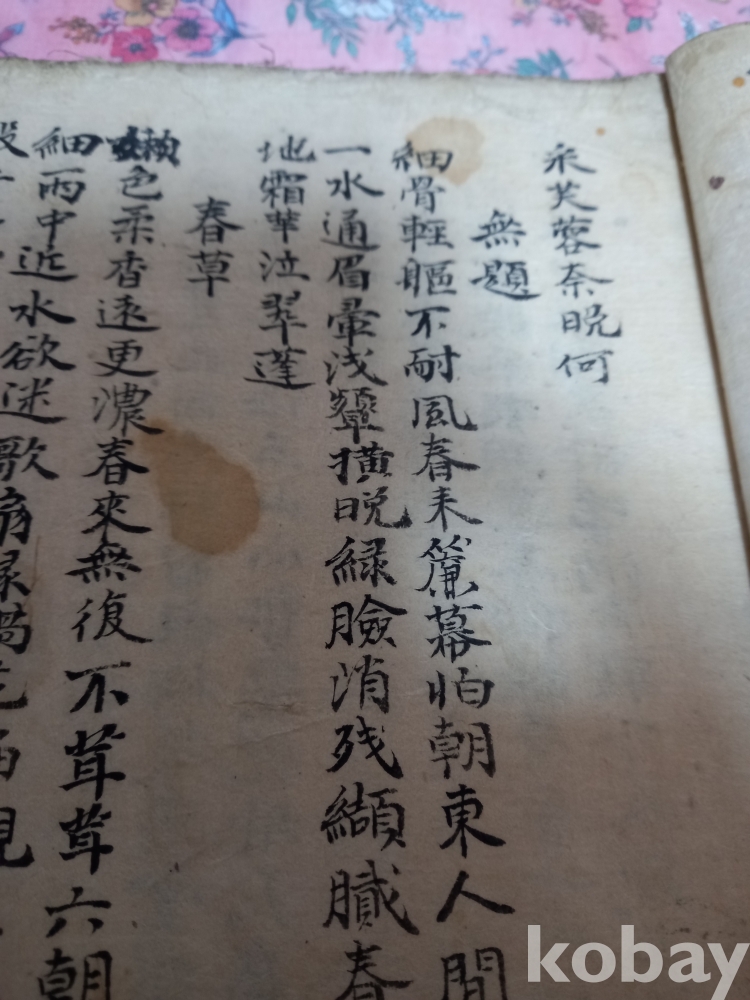 采芙蓉奈晩何
無題
細骨輕軀不耐風春来簾幕怕朝東人間
一水通眉暈浅顰横晩緑臉消残纈膩春
地霜華泣翠蓬
春草
嫩色柔香遠更濃春來無復不茸茸六朝
細雨中近水欲迷歌扇緑
kobay